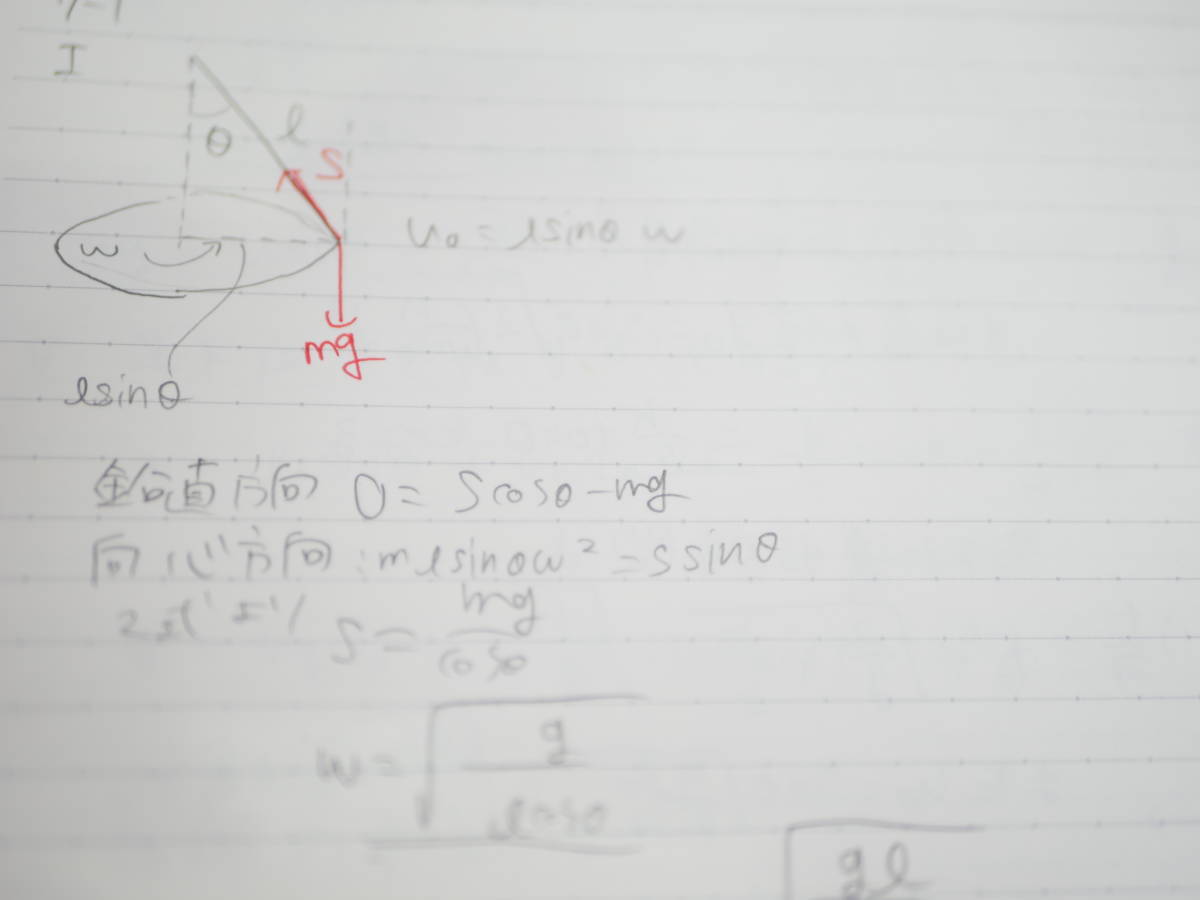 I
θ
l
S
v₀ = lsinθ ω
ω
mg
lsinθ
鉛直方向 0 = Scosθ - mg
向心方向 : mlsinθω² = Ssinθ
2式より S = mg/cosθ
ω = √(g/lcosθ)
√gl